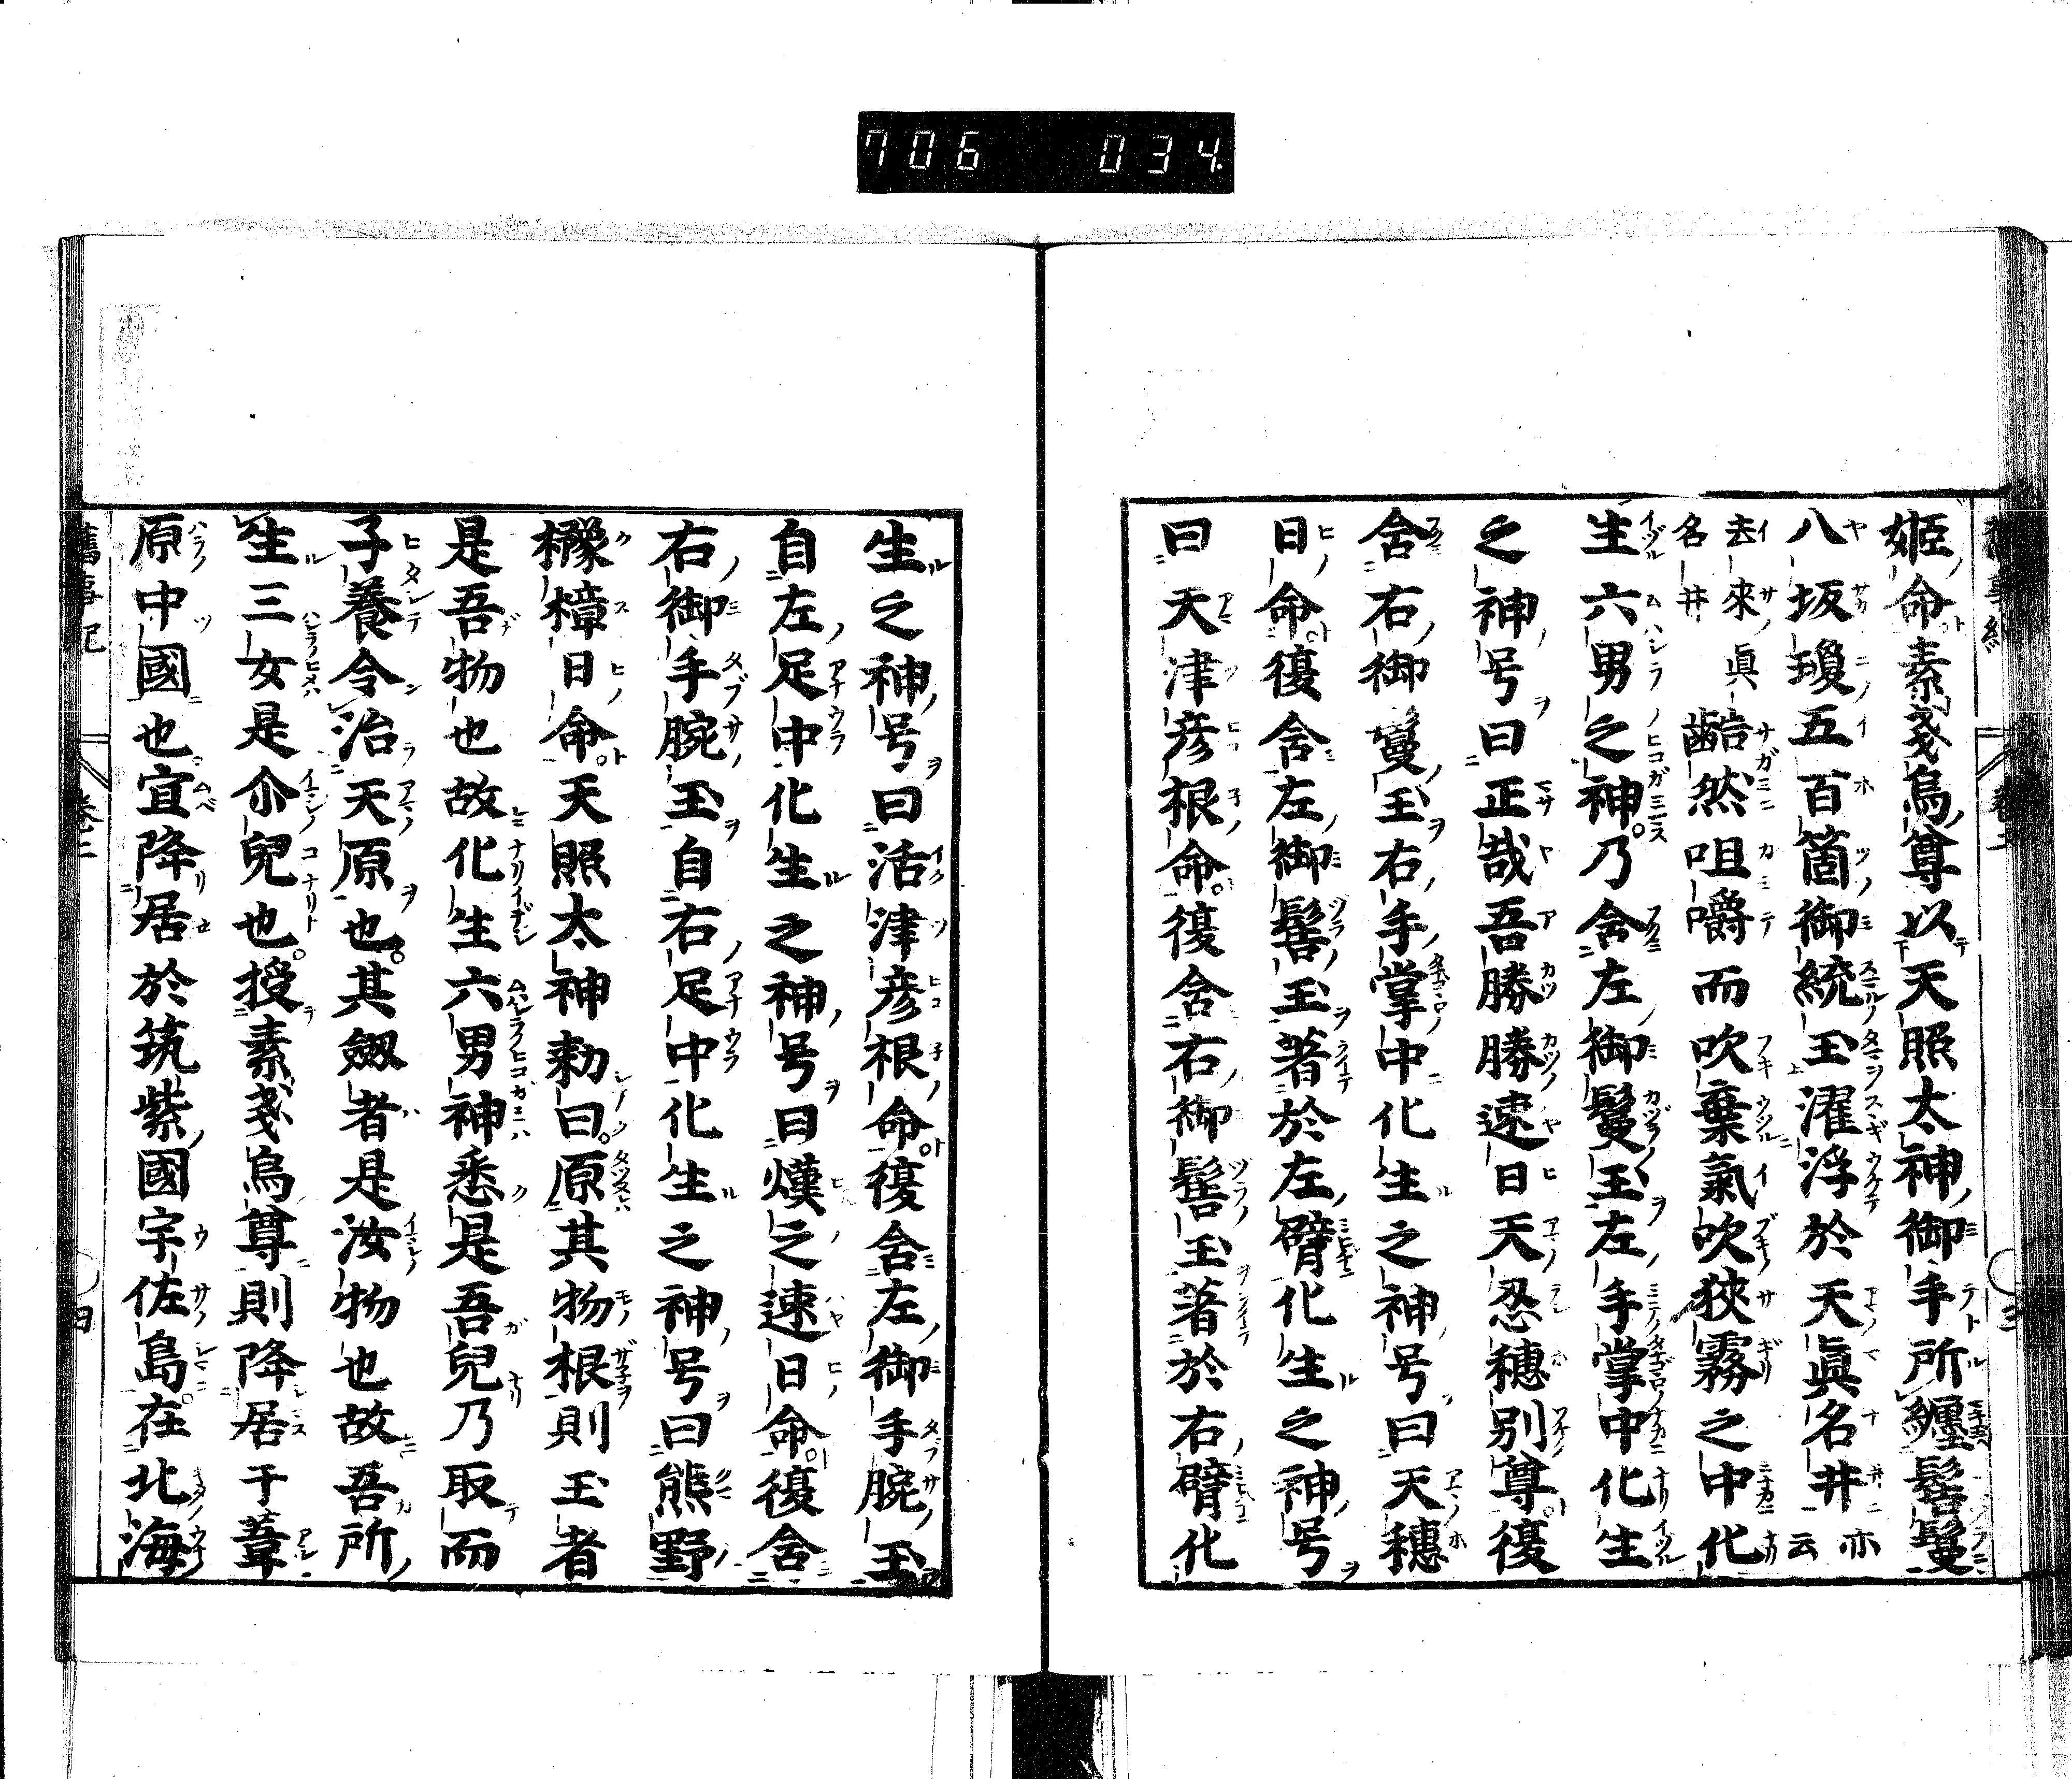 706 034
姫命素戔烏尊以天照太神御手所纏髻鬘
八坂瓊五百箇御統玉濯浮於天眞名井亦云
去來眞名井齰然咀嚼而吹棄氣吹狹霧之中化
生六男之神乃含左御鬘玉左手掌中化生
之神号曰正哉吾勝勝速日天忍穗別尊復
含右御鬘玉右手掌中化生之神号曰天穗
日命復含左御髻玉著於左臂化生之神号
曰天津彦根命復含右御髻玉著於右臂化
生之神号曰活津彦根命復含左御手腕玉
自左足中化生之神号曰熯之速日命復含
右御手腕玉自右足中化生之神号曰熊野
櫲樟日命天照太神勅曰原其物根則玉者
是吾物也故化生六男神悉是吾兒乃取而
子養令治天原也其劔者是汝物也故吾所
生三女是尒兒也授素戔烏尊則降居于葦
原中國也宜降居於筑紫國宇佐島在北海
舊事記 卷二 四